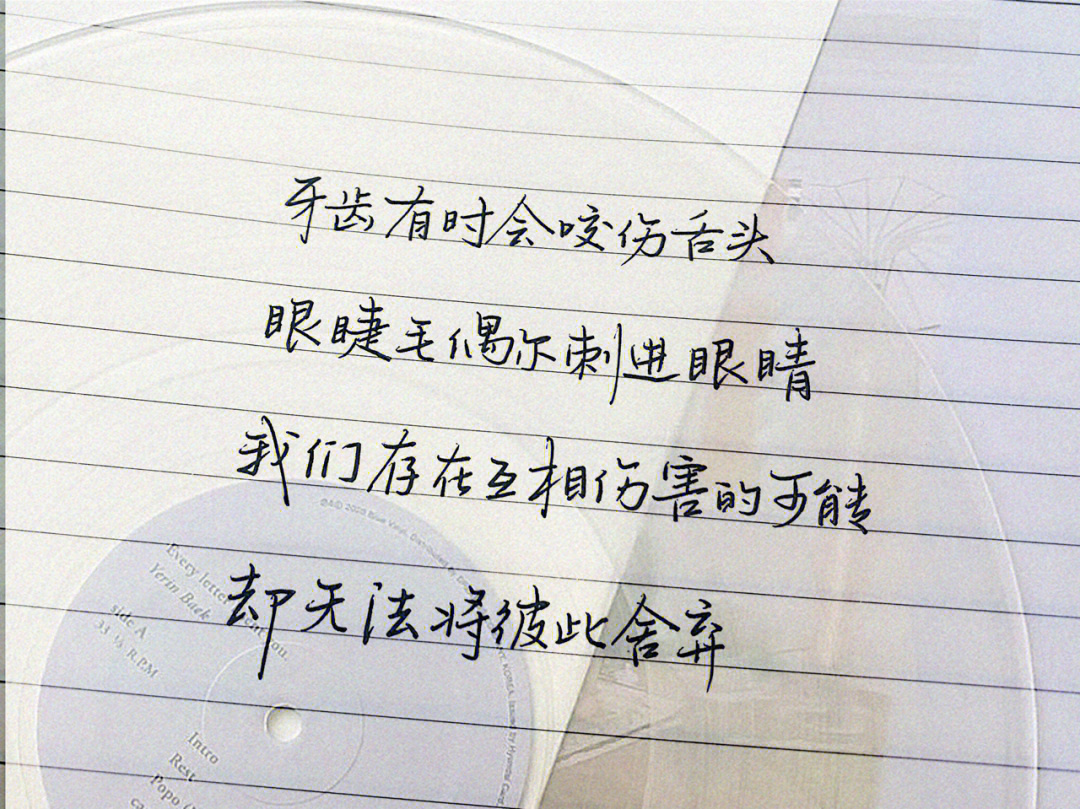 牙齿有时会咬伤舌头
眼睫毛偶尔刺进眼睛
我们存在互相伤害的可能
却无法将彼此舍弃
Every letter I sent you.
Yerin Baek
side A
33 ⅓ R.P.M
Intro
Rest
Popo